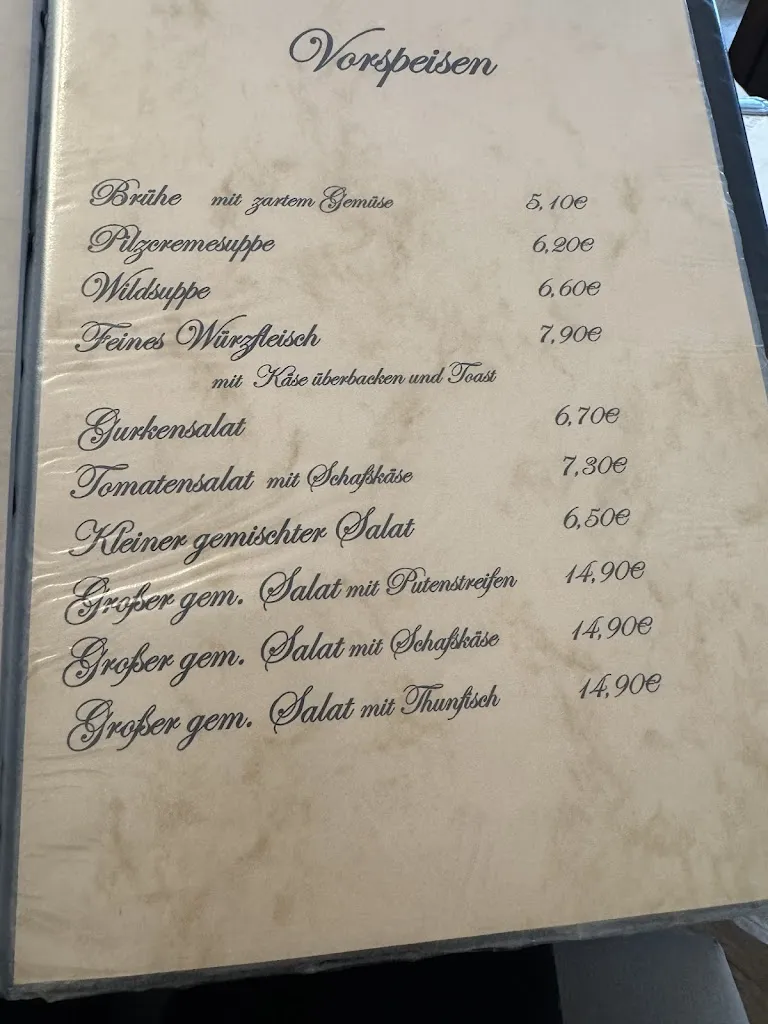 Vorspeisen
Brühe mit zartem Gemüse 5,10€
Pilzcremesuppe 6,20€
Wildsuppe 6,60€
Feines Würzfleisch 7,90€
mit Käse überbacken und Toast
Gurkensalat 6,70€
Tomatensalat mit Schafskäse 7,30€
Kleiner gemischter Salat 6,50€
Großer gem. Salat mit Putenstreifen 14,90€
Großer gem. Salat mit Schafskäse 14,90€
Großer gem. Salat mit Thunfisch 14,90€